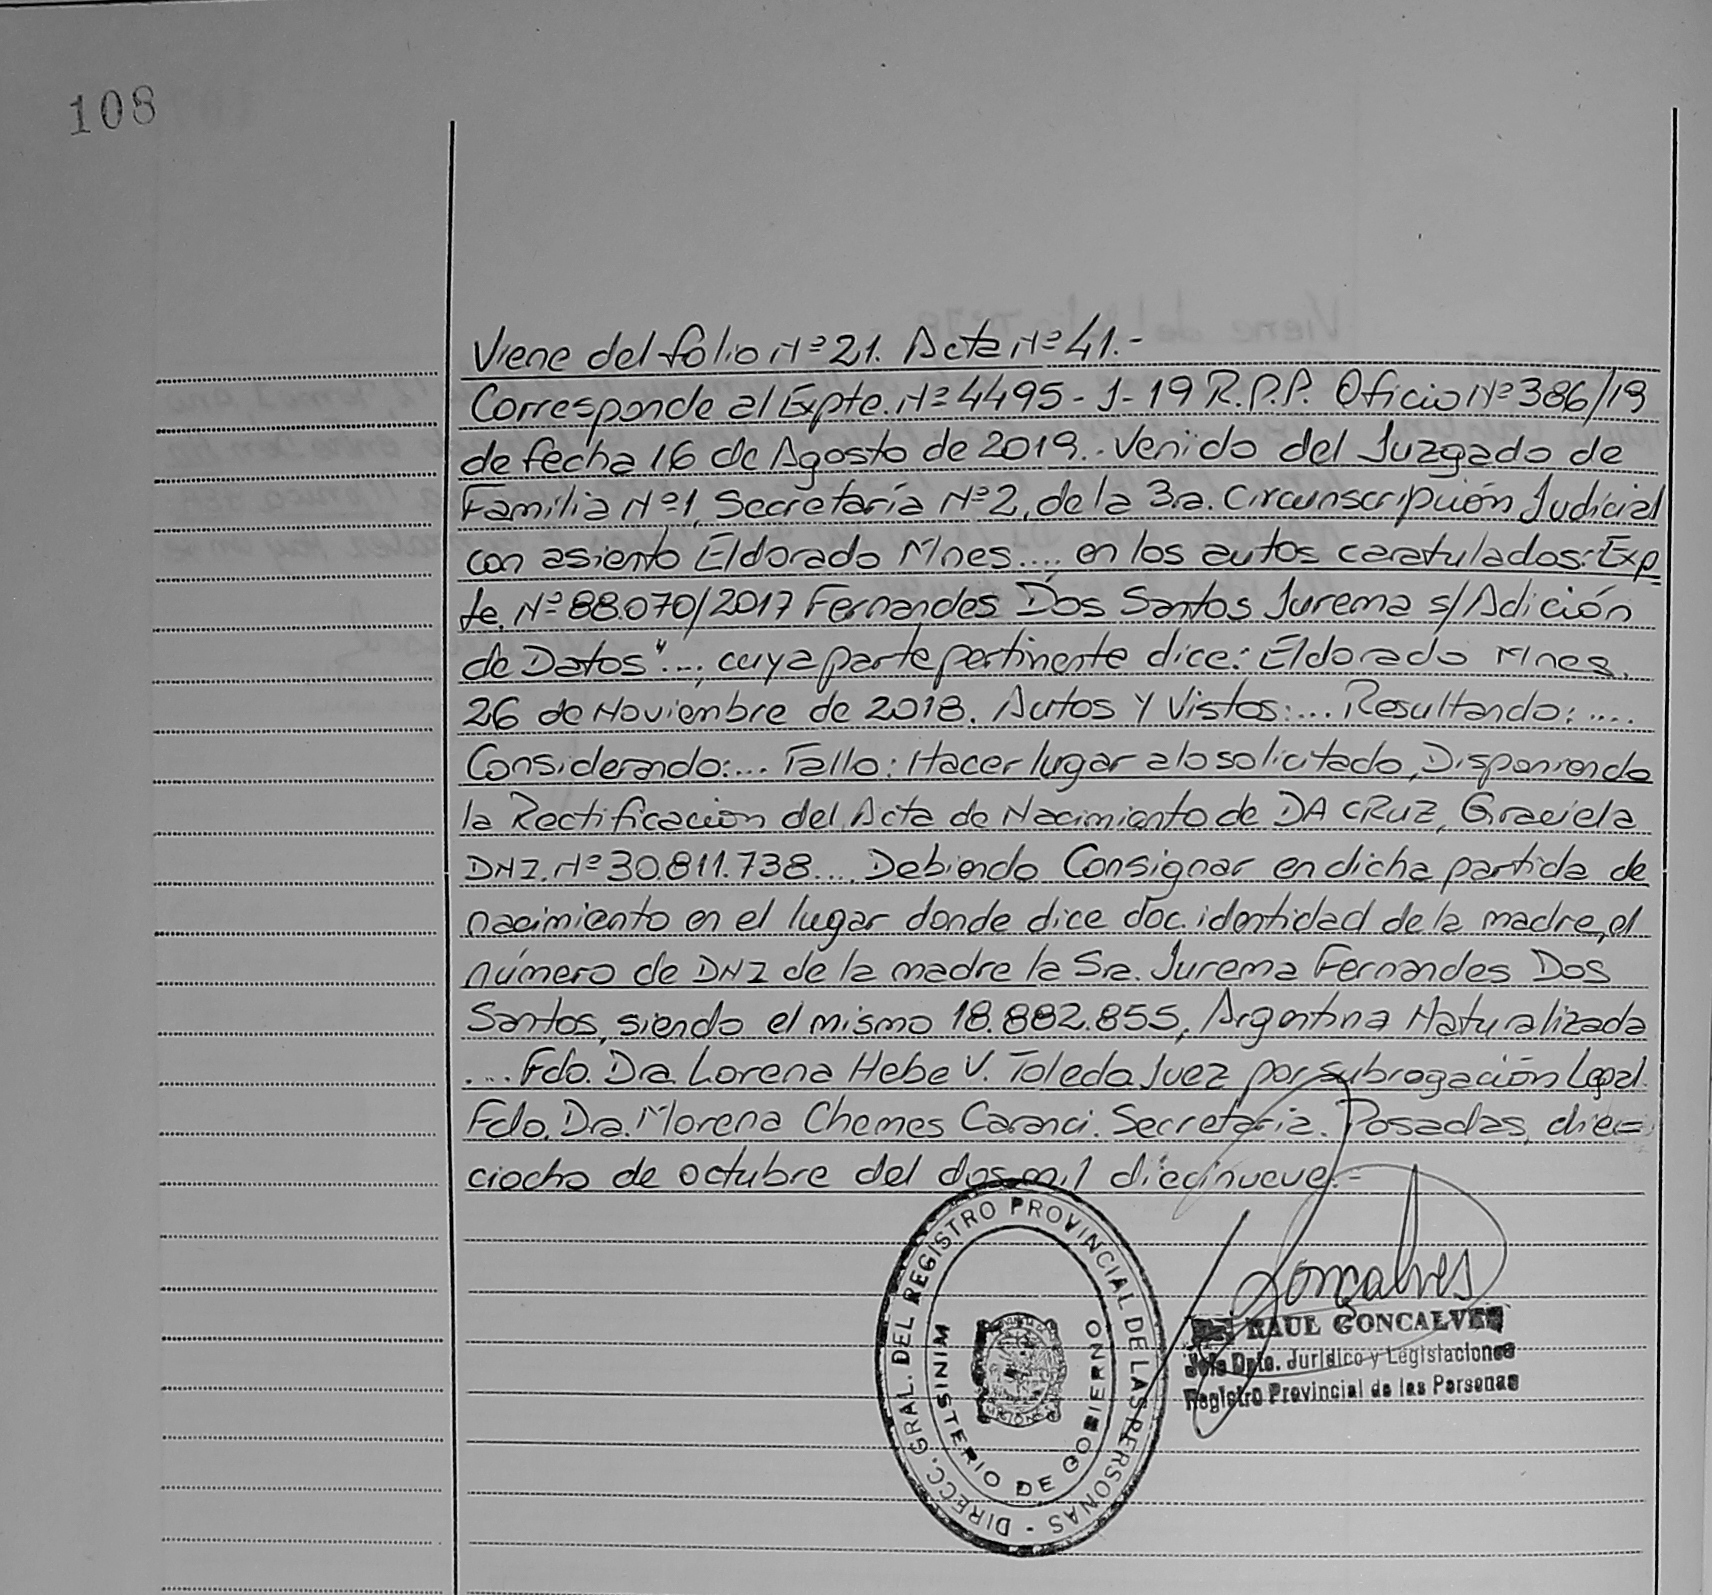 108
Viene del folio Nº 21. Acta Nº 41.-
Corresponde al Expte. Nº 4495-J-19 R.P.P. Oficio Nº 386/19
de fecha 16 de Agosto de 2019.. Venido del Juzgado de
Familia Nº 1, Secretaría Nº 2, de la 3ra. Circunscripción Judicial
con asiento Eldorado Mnes.... en los autos caratulados: Exp
te. Nº 88.070/2017 Fernandes Dos Santos Jurema s/Adición
de Datos"..., cuya parte pertinente dice: Eldorado Mnes,
26 de Noviembre de 2018. Autos Y Vistos:... Resultando:....
Considerando:... Fallo: Hacer lugar a lo solicitado, Disponiendo
la Rectificación del Acta de Nacimiento de DA CRUZ, Graciela
DNI. Nº 30.811.738... Debiendo Consignar en dicha partida de
nacimiento en el lugar donde dice doc. identidad de la madre, el
número de DNI de la madre la Sra. Jurema Fernandes Dos
Santos, siendo el mismo 18.882.855, Argentina Naturalizada
.... Fdo. Dra. Lorena Hebe V. Toledo Juez por subrogación Legal.
Fdo. Dra. Morena Chemes Caranci. Secretaria. Posadas, diec=
ciocho de octubre del dos mil diecinueve.-
DIRECC. GRAL. DEL REGISTRO PROVINCIAL DE LAS PERSONAS -
MINISTERIO DE GOBIERNO
MISIONES
Goncalves
RAUL GONCALVES
Jefe Dpto. Jurídico y Legislaciones
Registro Provincial de las Personas